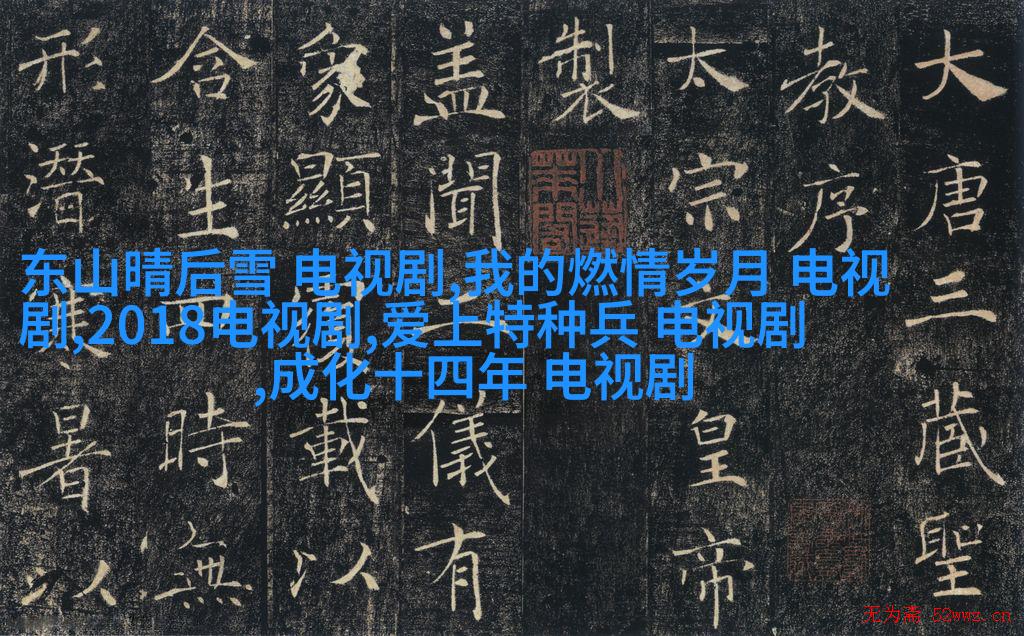 大唐三藏聖
教序
太宗文皇帝
製
盖聞二儀有
象顯載以
含生四時無
形潛暑以
东山晴后雪 电视剧,我的燃情岁月 电视
剧,2018电视剧,爱上特种兵 电视剧
,成化十四年 电视剧
无为斋 52wwz.cn